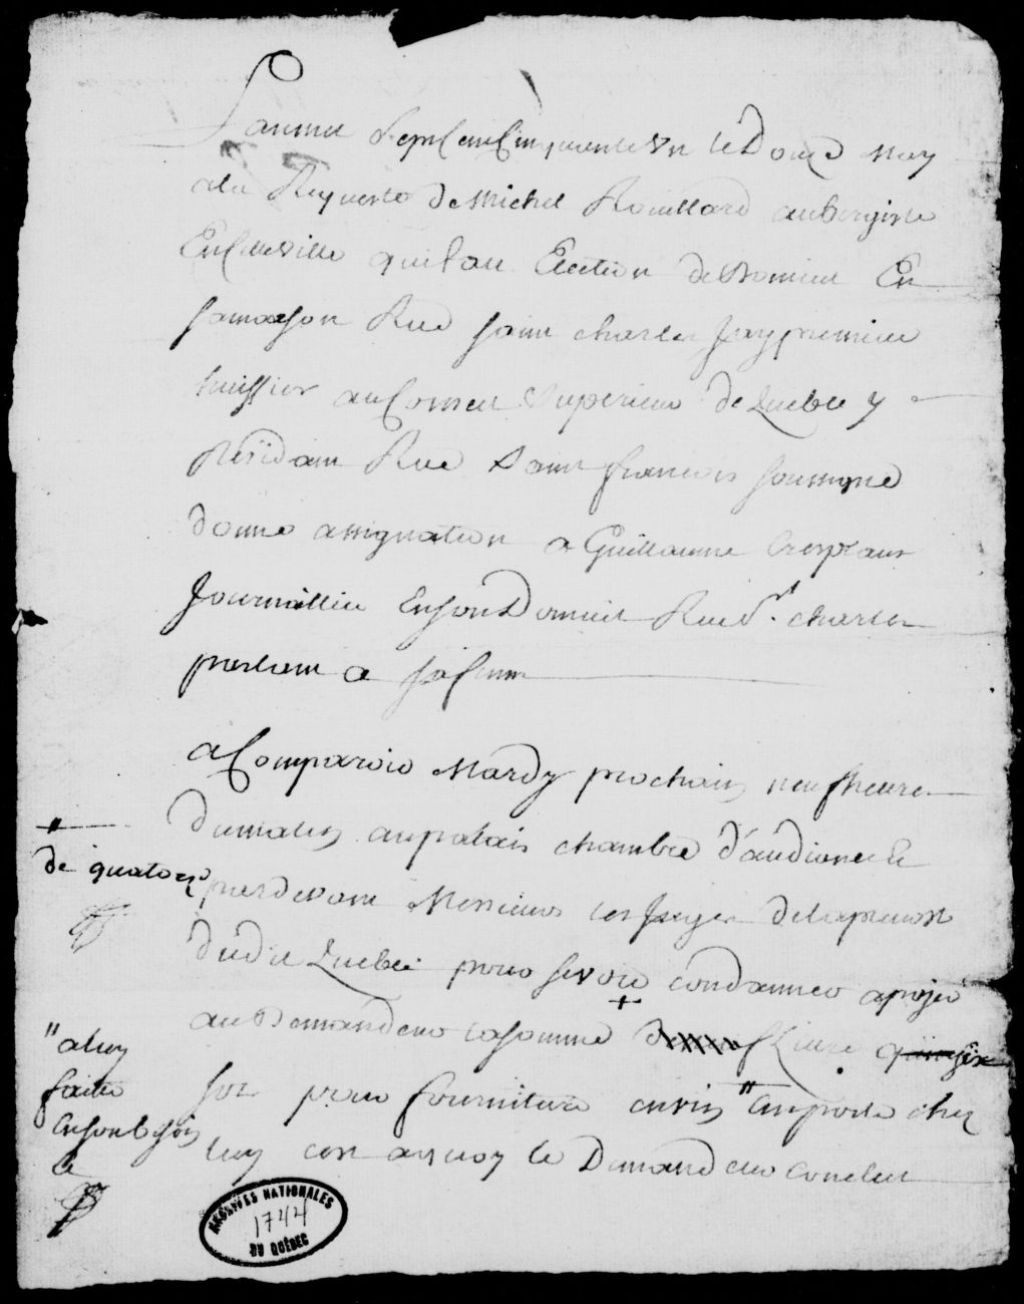 Lannee Sept Cent Cinquante Un le Douze May
a la Requeste de Michel Rouillard aubergiste
En cette ville qui fait Election de Domicile En
sa maison Rue saint charles Jay premier
huissier au Conseil Superieur de Quebec y
Residant Rue Saint francois soussigné
donné assignation a Guillaume
Journallier En son Domicile Rue St. charles
parlant a
a Comparoir Mardy prochain neuf heure
du matin au palais chambre d'audience Et
pardevant Messieurs les Juges de la prevosté
dudit Quebec pour se voir condamner a payer
au Demandeur la somme de Livre
sol pour fourniture en vin " Emporté chez
luy est au quoy le Demandeur conclut
"
de quatorze
" a luy
faite
En son besoin
Et
ARCHIVES NATIONALES
1744
DU QUÉBEC